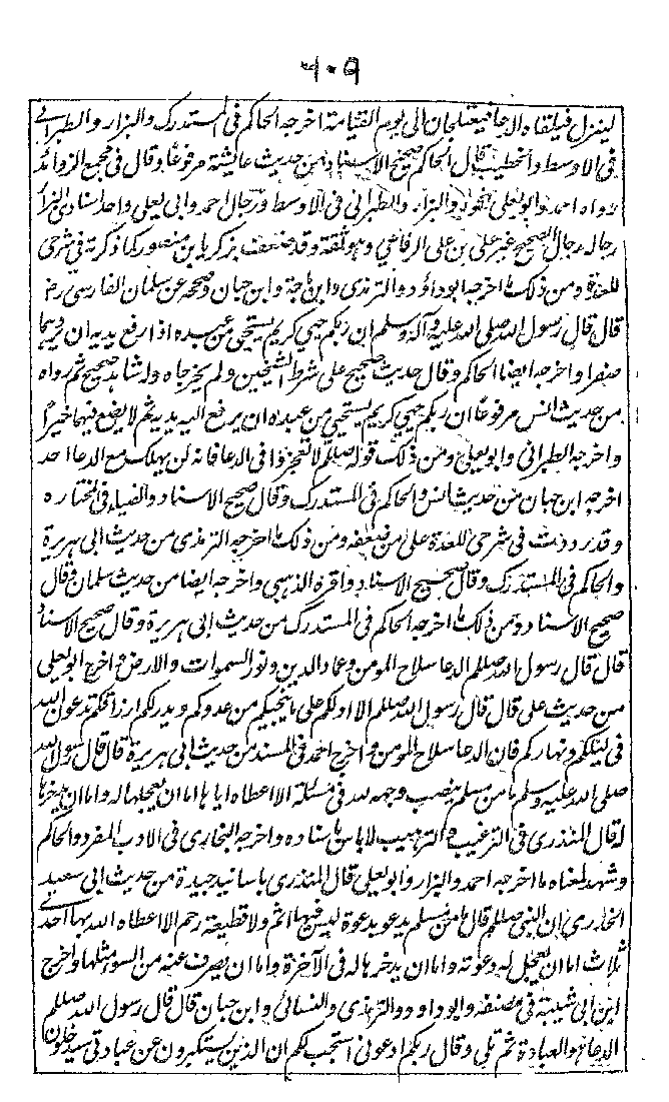 ٦٠٩
لينزل فيلقاه الدعا فيعتلجان الى يوم القيامة اخرجه الحاكم فى المستدرك والبزار والطبرانے
فى الاوسط والخطيب قال الحاكم صحيح الاسناد من حديث عايشة مرفوعًا وقال فى مجمع الزوائد
رواه احمد وابو يعلى بنحوه والبزار والطبرانى فى الاوسط ورجال احمد وابى يعلى واحد اسنادى البزار
رجاله رجال الصحيح غير على بن على الرفاعي وهو ثقة وقد ضعف بزكريا بن منصور كما ذكرته فى شرحى
للعدة ومن ذلك ما اخرجه ابو داؤد والترمذى وابن ماجة وابن حبان وصححه عن سلمان الفارسى رضـ
قال قال رسول الله صلى الله عليه وآله وسلم ان ربكم حيي كريم يستحيي من عبده اذا رفع يديه ان يردهما
صفرا واخرجه ايضا الحاكم وقال حديث صحيح على شرط الشيخين ولم يخرجاه وله شاهد صحيح ثم رواه
من حديث انس مرفوعًا ان ربكم حيي كريم يستحيي من عبده ان يرفع اليه يديه ثم لا يضع فيهما خيرًا
واخرجه الطبرانى وابو يعلى ومن ذلك قوله صللم لا تعجزوا فى الدعا فانه لن يهلك مع الدعا احد
اخرجه ابن حبان من حديث انس والحاكم فى المستدرك وقال صحيح الاسناد والضياء فى المختاره
وقد رددت فى شرحى للعدة على من ضعفه ومن ذلك ما اخرجه الترمذى من حديث ابى هريرة
والحاكم فى المستدرك وقال صحيح الاسناد واقره الذهبى واخرجه ايضا من حديث سلمان وقال
صحيح الاسناد ومن ذلك ما اخرجه الحاكم فى المستدرك من حديث ابى هريرة وقال صحيح الاسناد
قال قال رسول الله صللم الدعا سلاح المومن وعماد الدين ونور السموات والارض واخرج ابو يعلى
من حديث على قال قال رسول الله صللم الا ادلكم على ما ينجيكم من عدوكم ويدر لكم ارزاقكم تدعون الله
فى ليلكم ونهاركم فان الدعا سلاح المومن واخرج احمد فى المسند من حديث ابى هريرة قال قال رسول الله
صلى الله عليه وسلم ما من مسلم ينصب وجهه لله فى مسئلة الا اعطاه اياها اما ان يعجلها له واما ان يدخرها
له قال المنذرى فى الترغيب والترهيب لا باس باسناده واخرجه البخارى فى الادب المفرد والحاكم
وشهد لمعناه ما اخرجه احمد والبزار وابو يعلى قال المنذرى باسانيد جيدة من حديث ابى سعيد
الخدرى ان النبى صللم قال ما من مسلم يدعو بدعوة ليس فيها اثم ولا قطيعة رحم الا اعطاه الله بها احدے
ثلاث اما ان يعجل له دعوته واما ان يدخرها له فى الآخرة واما ان يصرف عنه من السوء مثلها واخرج
ابن ابى شيبة فى مصنفه وابو داود والترمذى والنسائى وابن حبان قال قال رسول الله صللم
الدعا هو العبادة ثم تلى وقال ربكم ادعونى استجب لكم ان الذين يستكبرون عن عبادتى سيدخلون